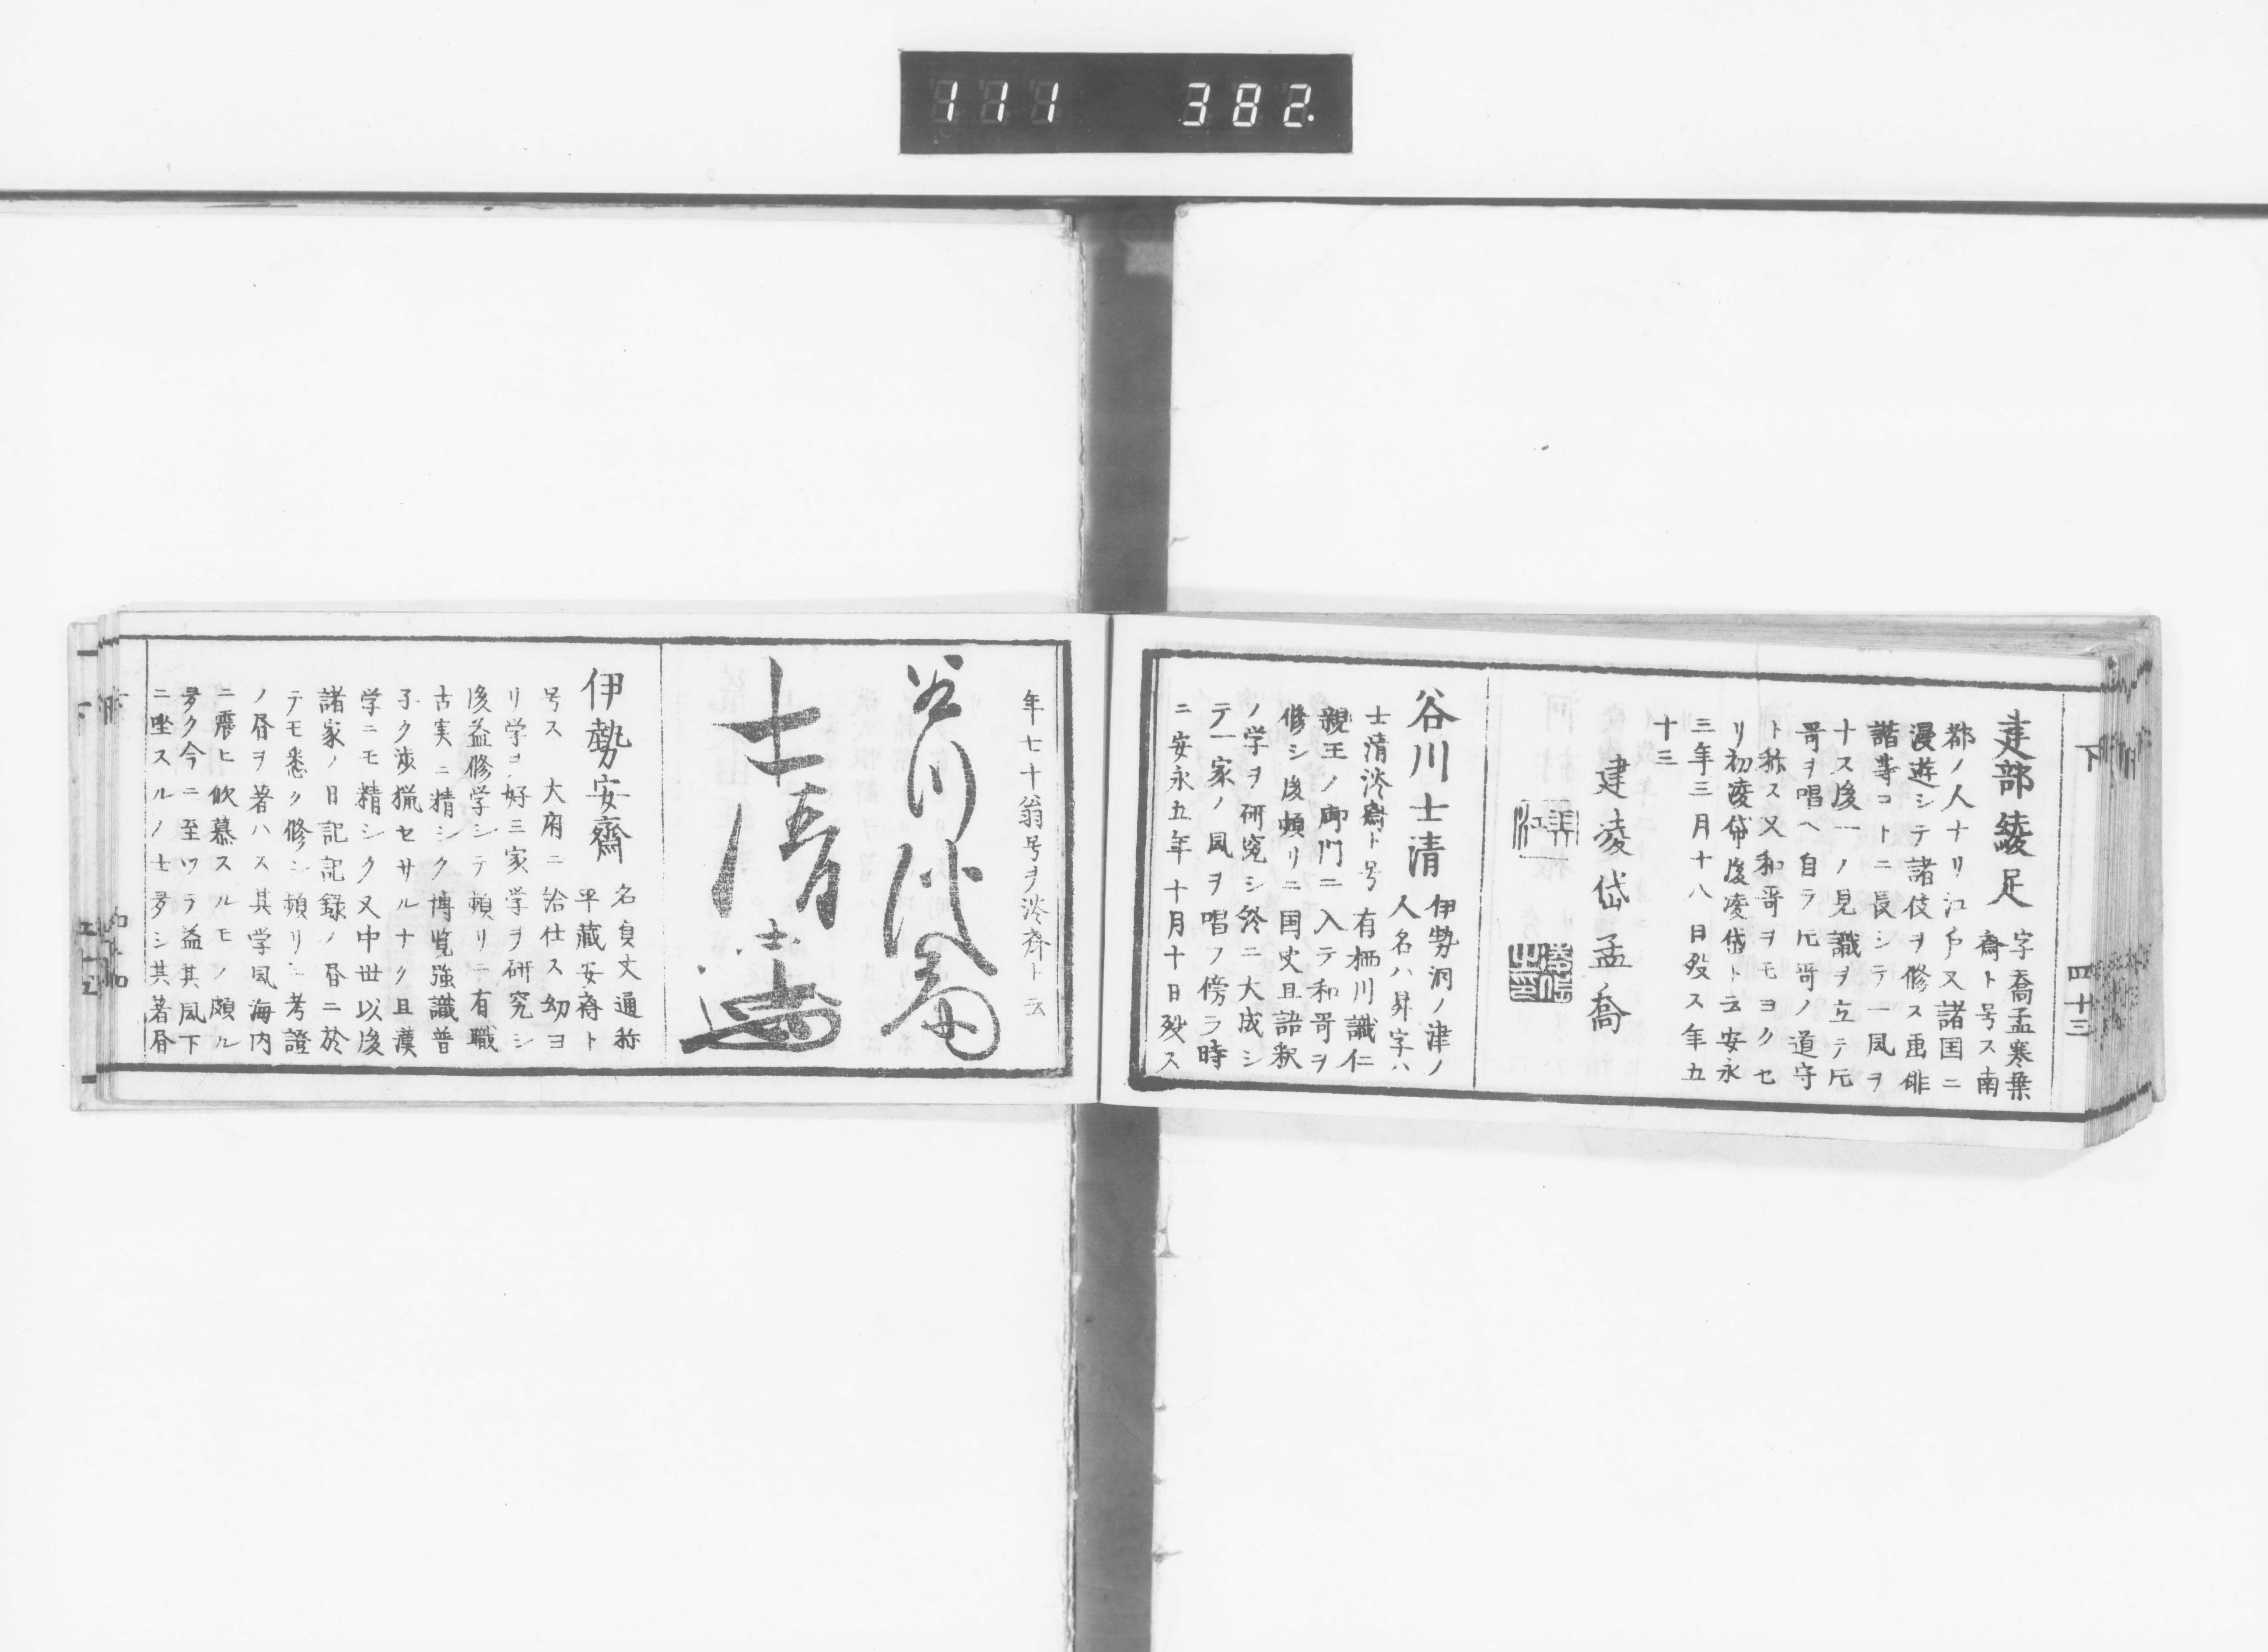 111 382.
下
四十三
建部綾足 字喬孟寒葉
齋ト号ス南
都ノ人ナリ江戸又諸国ニ
漫遊シテ諸伎ヲ修ス画俳
諧等コトニ長シテ一風ヲ
ナス後一ノ見識ヲ立テ片
哥ヲ唱ヘ自ラ片哥ノ道守
ト称ス又和哥ヲモヨクセ
リ初凌岱後凌岱ト云安永
三年三月十八日歿ス年五
十三
建凌岱孟喬
谷川士清 伊勢洞ノ津ノ
人名ハ昇字ハ
士清淡齋ト号 有栖川識仁
親王ノ御門ニ入テ和哥ヲ
修シ後頻リニ国史且語釈
ノ学ヲ研究シ終ニ大成シ
テ一家ノ風ヲ唱フ傍ラ時
ニ安永五年十月十日歿ス
年七十翁号ヲ淡斎ト云
谷川淡斎
士清
士清
伊勢安齋 名貞丈通称
平蔵安斎ト
号ス 大府ニ給仕ス幼ヨ
リ学ヲ好三家学ヲ研究シ
後益修学シテ頻リニ有職
古実ニ精シク博覧強識普
子ク渉猟セサルナク且漢
学ニモ精シク又中世以後
諸家ノ日記記録ノ昏ニ於
テモ悉ク修シ頻リニ考證
ノ昏ヲ著ハス其学風海内
ニ靡ヒ欽慕スルモノ頗ル
多ク今ニ至ツラ益其風下
ニ坐スルノ士多シ其著昏